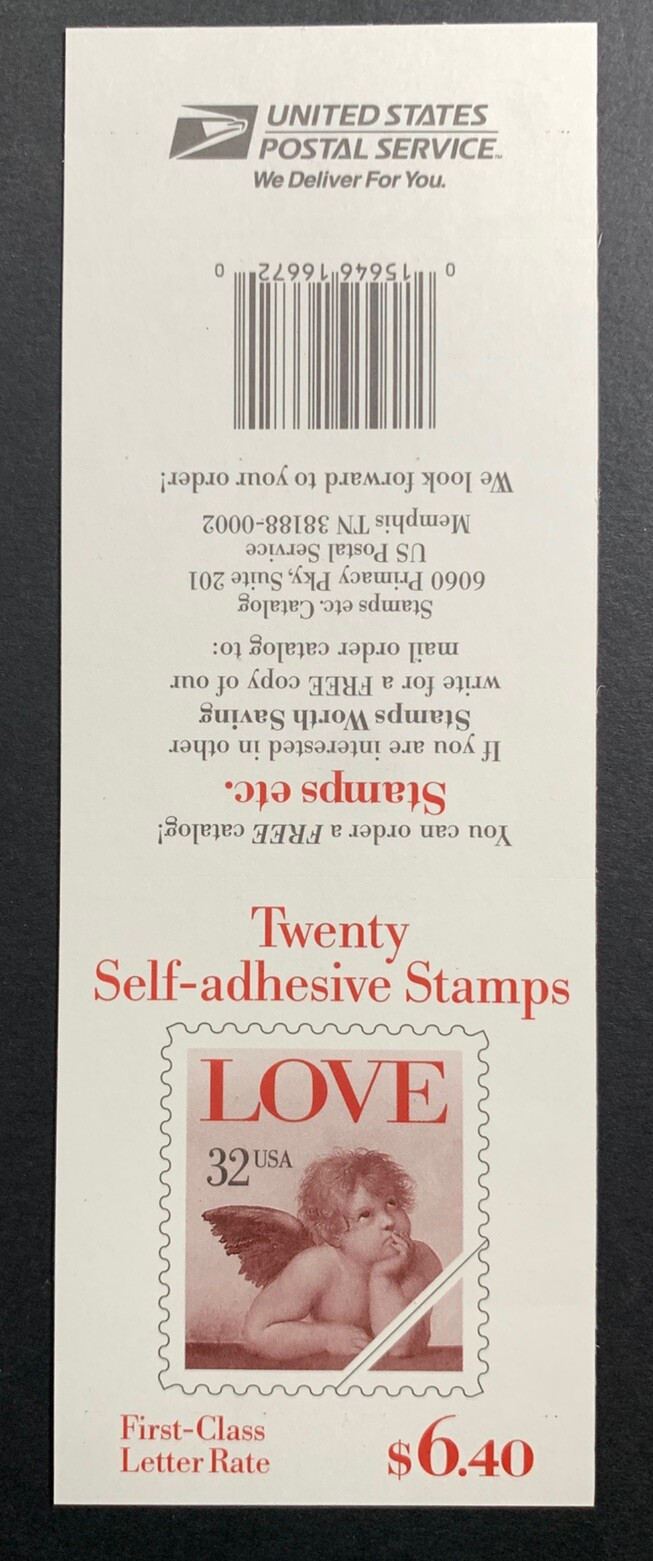 UNITED STATES
POSTAL SERVICE™
We Deliver For You.
You can order a FREE catalog!
Stamps etc.
If you are interested in other
Stamps Worth Saving
write for a FREE copy of our
mail order catalog to:
Stamps etc. Catalog
6060 Primacy Pky, Suite 201
US Postal Service
Memphis TN 38188-0002
We look forward to your order!
0 15646 16672 0
Twenty
Self-adhesive Stamps
LOVE
32 USA
First-Class
Letter Rate
$6.40